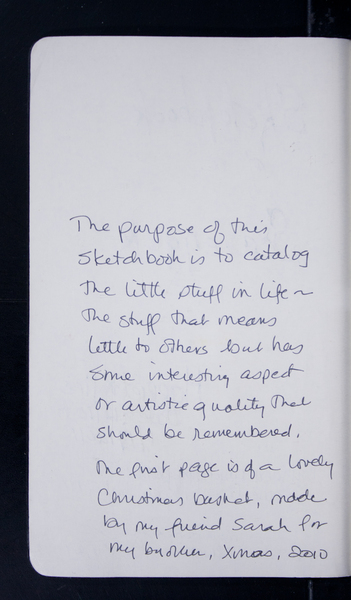 The purpose of this
sketchbook is to catalog
the little stuff in life ~
the stuff that means
little to others but has
some interesting aspect
or artistic quality that
should be remembered.
The first page is of a lovely
Christmas basket, made
by my friend Sarah for
my brother, Xmas, 2010